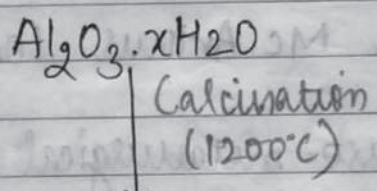 Al₂O₃.xH2O
Calcination
(1200°C)